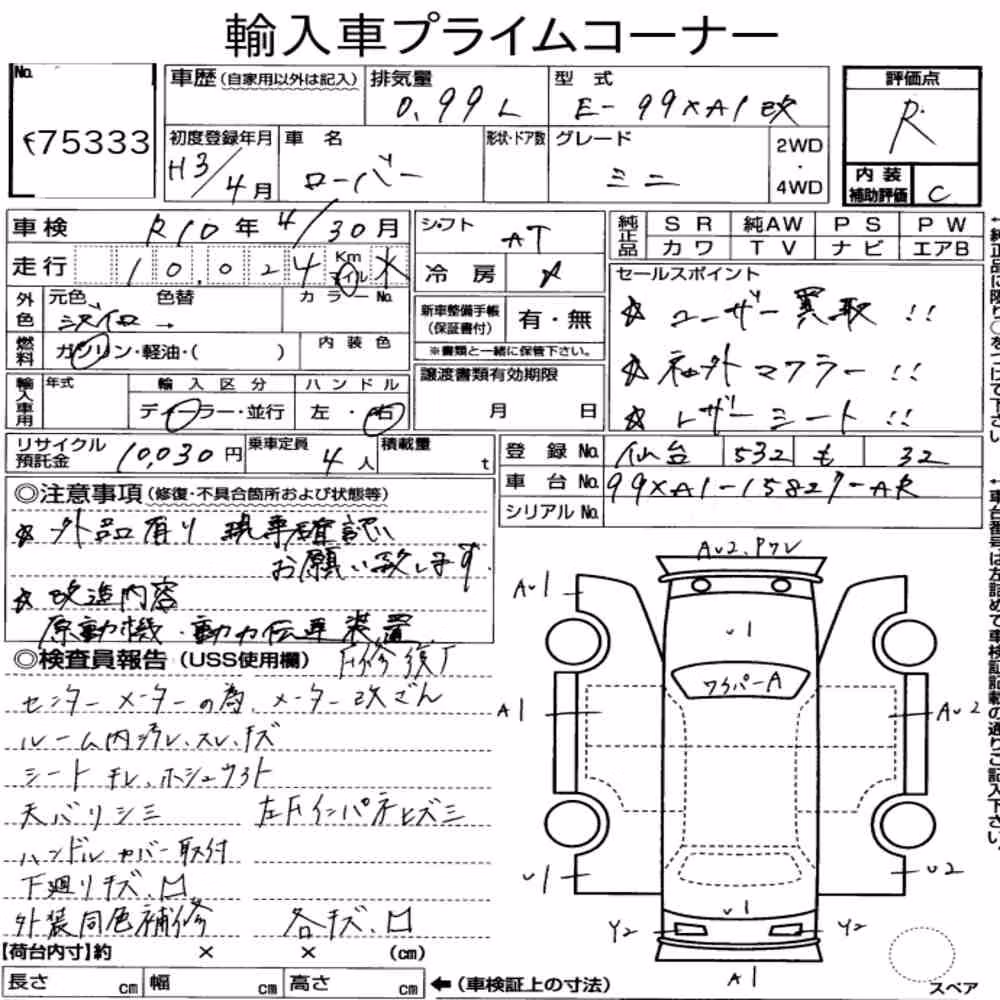 輸入車プライムコーナー
No.
75333
車歴(自家用以外は記入) 排気量 0.99 L 型式 E-99XA1改
初度登録年月 H3/4月 車名 ローバー 形状・ドア数 グレード ミニ 2WD・4WD
評価点 R
内装補助評価 C
車検 R10年4/30月
走行 10,024 Km マイル
外色 元色 色替 カラーNo.
シルバー →
燃料 ガソリン・軽油・( ) 内装色
輸入車用 年式 輸入区分 ハンドル
ディーラー・並行 左・右
リサイクル預託金 10,030円 乗車定員 4人 積載量 t
シフト AT
冷房
新車整備手帳(保証書付) 有・無
※書類と一緒に保管下さい。
譲渡書類有効期限
月 日
純正品 SR 純AW PS PW
カワ TV ナビ エアB
セールスポイント
☆ ユーザー買取!!
☆ 社外マフラー!!
☆ レザーシート!!
登録No. 仙台 532 も 32
車台No. 99XA1-15827-AR
シリアルNo.
◎注意事項(修復・不具合箇所および状態等)
☆ 外品有り 現車確認
お願い致します。
☆ 改造内容
原動機・動力伝達装置
◎検査員報告(USS使用欄)
センターメーターの為、メーター改ざん
ルーム内汚レ、スレ、キズ
シート
天バリシミ 左Fインパネヒズミ
ハンドルカバー取付
下廻りキズ、凹
外装同色補修 各キズ、凹
【荷台内寸】約 × × (cm)
長さ cm 幅 cm 高さ cm ←(車検証上の寸法)
AU2、ワレ
AU1
A1
U1
U1
ワイパーA
A1
AU2
U1
U2
U1
Y2
Y2
A1
スペア
↑純正品に限り○をつけて下さい。
↑車台番号は左詰めで車検証記載の通りご記入下さい。